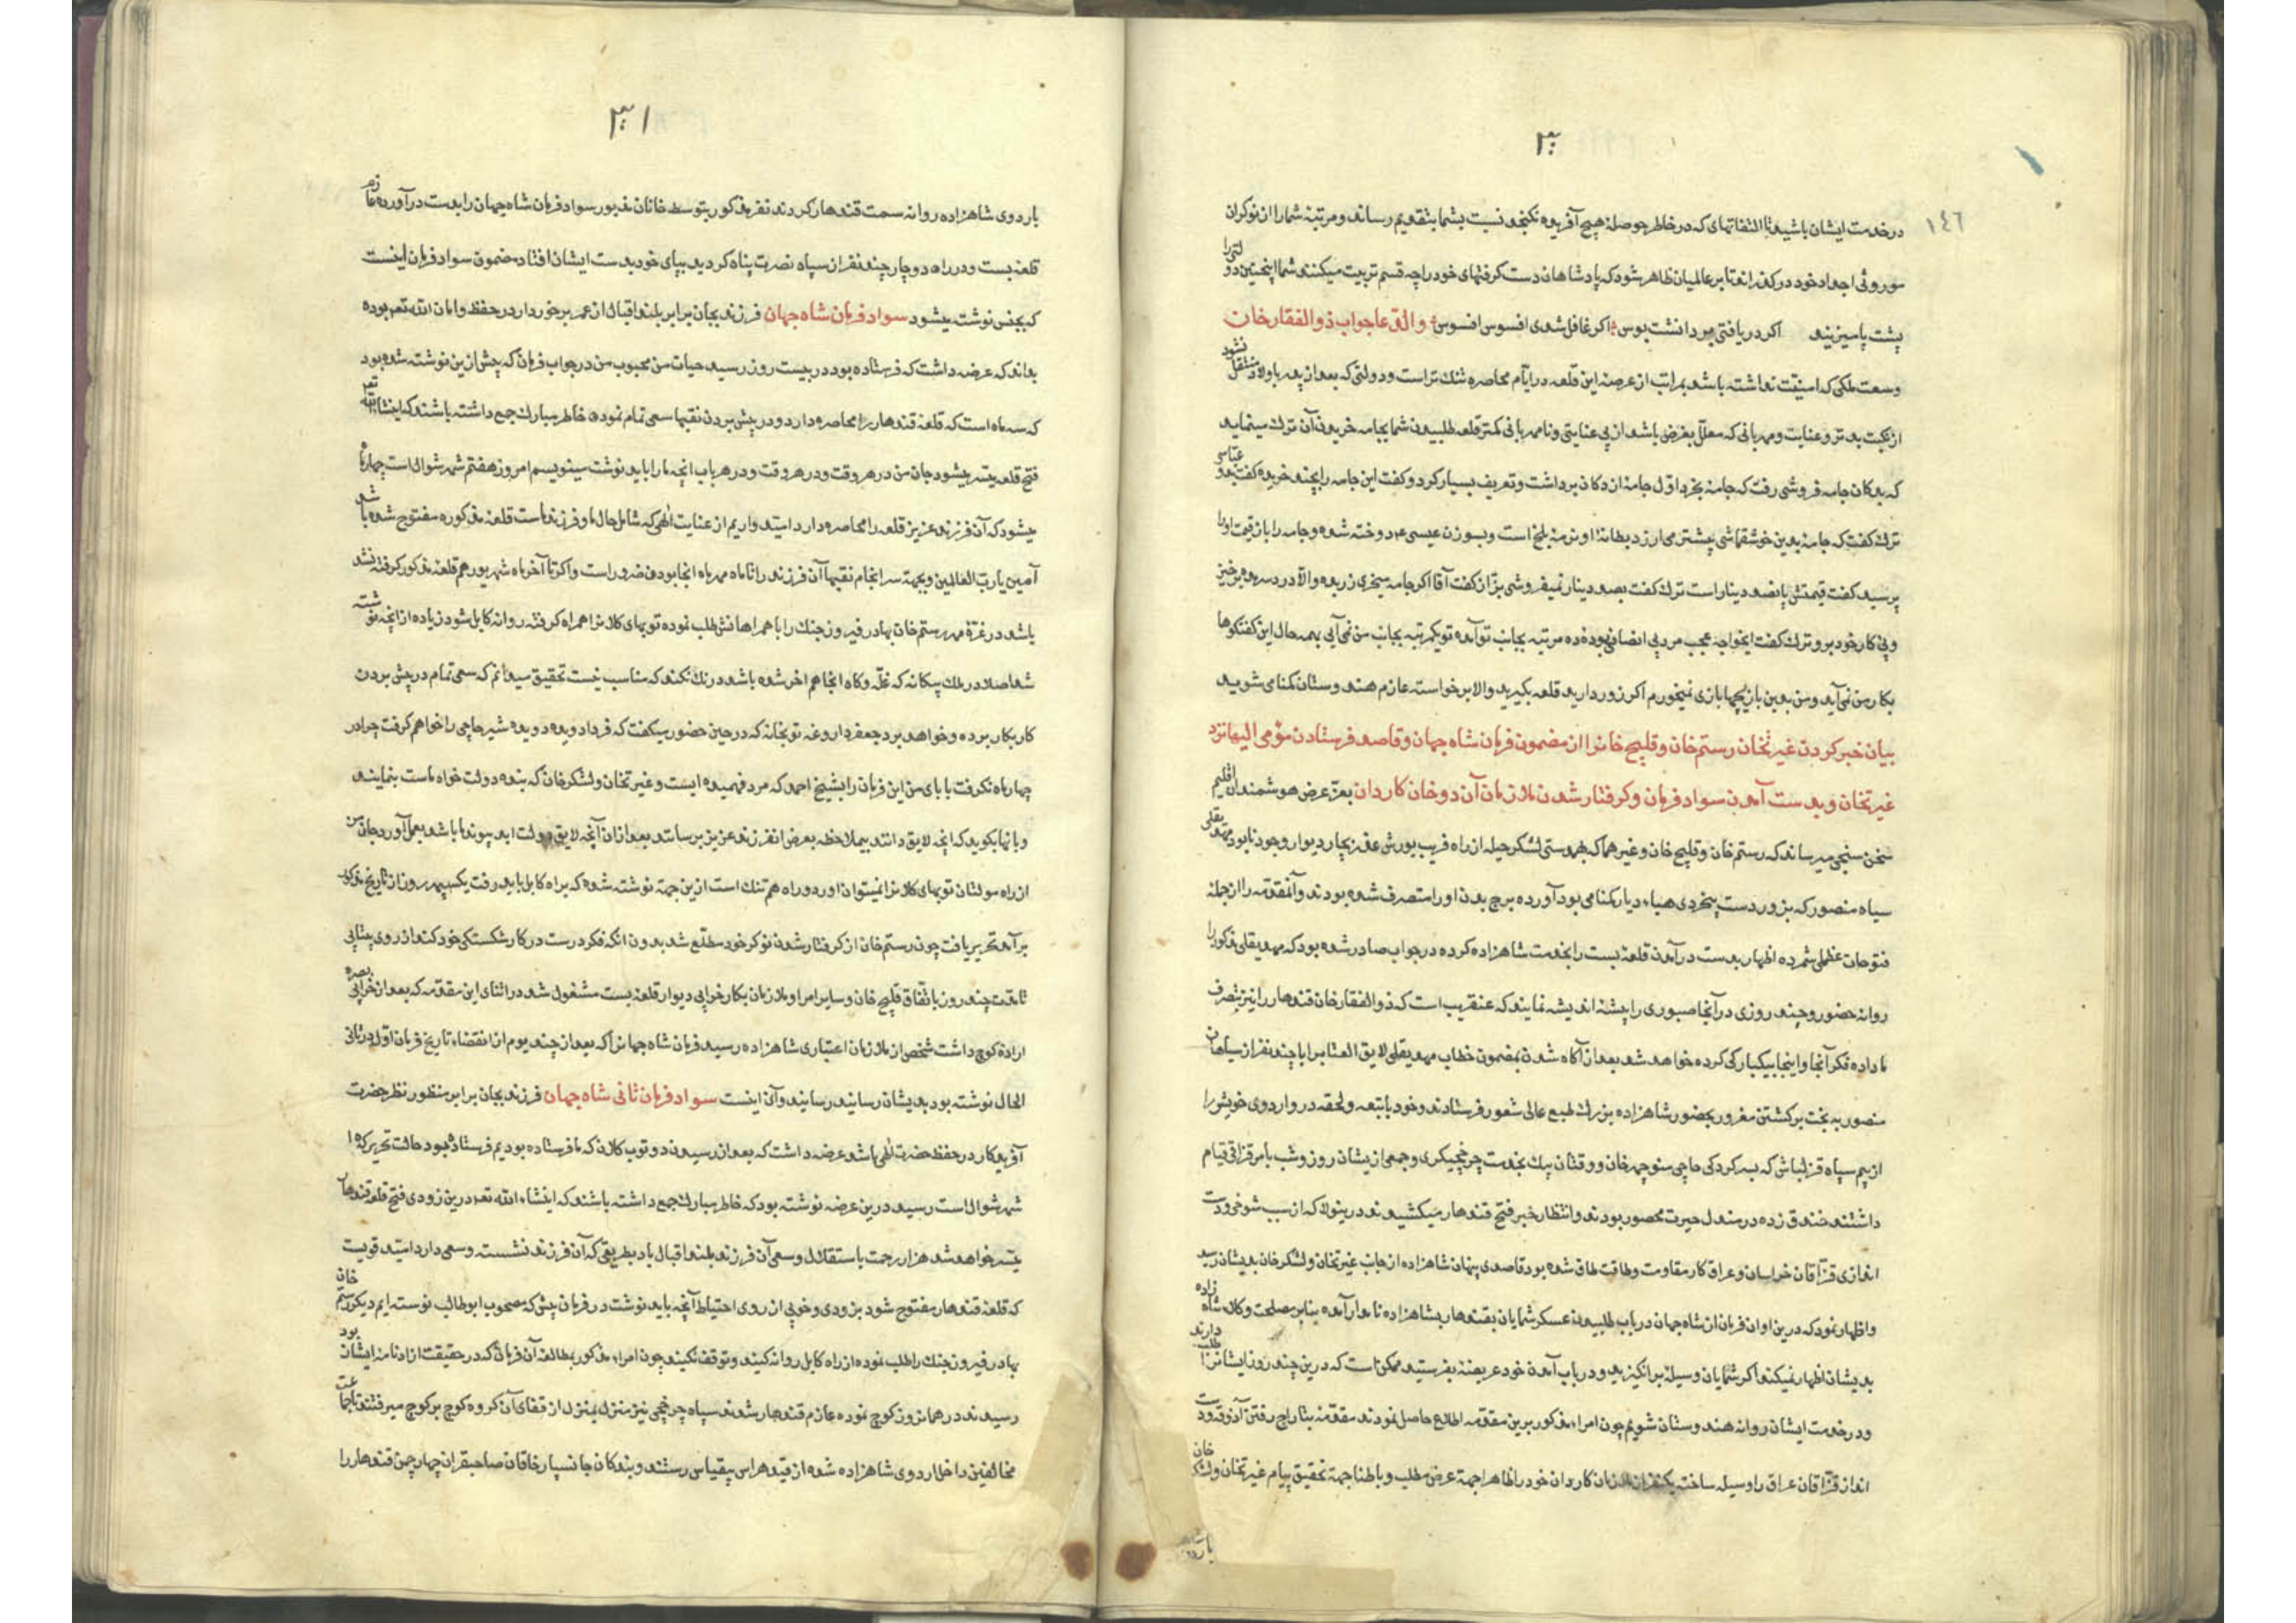 ١٤٦
در خدمت ایشان باشید تا التفاتهای که در خاطر حوصلهٔ هیچ آفریده نکنجد نسبت بشما بتقدیم رساند و مرتبهٔ شما را از نوکران
موروثی اجداد خود در کذراند تا بر عالمیان ظاهر شود که پادشاهان دست کرفتهای خود را چه قسم تربیت میکنند شما اینچنین دولتی را
پشت پا میزنید اکر دریافتی بر دانشت بوس اکر غافل شدی افسوس افسوس والدعا جواب ذوالفقار خان
وسعت ملکی که امنیّت نداشته باشد بمراتب از عرصهٔ این قلعه در ایّام محاصره تنک تر است و دولتی که بعد از پدر باولاد منتقل نشود
از نکبت بدتر و عنایت و مهربانی که معلّل بغرض باشد از بی عنایتی و نامهربانی کمتر قلعه طلبیدن شما بجامه خریدن آن ترک مینماید
که بدکان جامه فروشی رفت که جامهٔ بخرد اوّل جامهٔ از دکان برداشت و تعریف بسیار کرد و کفت این جامه را بچند خریدهٔ کفت بدو عبّاسی
ترک کفت که جامهٔ بدین خوشقماشی بیشتر می ارزد بطانهٔ او نرمهٔ بلخ است و بسوزن عیسی ع دوخته شده و جامه را باز قیمت او را
پرسید کفت قیمتش پانصد دینار است ترک کفت بصد دینار نمیفروشی بزّاز کفت آقا اکر جامه میخری زر بده والّا دردسر مده برخیز
و پی کار خود برو ترک کفت ایخواجه عجب مرد بی انصافی بودهٔ ده مرتبه بجانب تو آمدم تو یکمرتبه بجانب من نمی آیی بهمه حال این کفتکوها
بکار من نمی آید و من بدین بازیچها بازی نمیخورم اکر زور دارید قلعه بکیرید والا برخواسته عازم هندوستان کنامی شوید
بیان خبر کردن غیرتخان رستم خان و قلیج خانرا از مضمون فرمان شاه جهان و قاصد فرستادن مؤمی الیها نزد
غیرتخان و بدست آمدن سواد فرمان و کرفتار شدن ملازمان آن دو خان کاردان بعزّ عرض هوشمندان اقلیم
سخن سنجی میرساند که رستم خان و قلیج خان و غیرهما که بهمدستی لشکر حیله از راه فریب یورش عذر بچار دیوار وجود نابود مهدیقلی
سپاه منصور که بزور دست بیخردی هباء دیار کمنامی بود آورده برج بدن او را متصرف شده بودند و آنمقدّمه را از جمله
فتوحات عظمی شمرده اظهار بدست در آمدن قلعهٔ بست را بخدمت شاهزاده کرده در جواب صادر شده بود که مهدیقلی مذکور را
روانه حضور و چند روزی در آنجا صبوری را پیشهٔ اندیشه نمایند که عنقریب است که ذوالفقار خان قندهار را نیز بتصرف
ما داده فکر آنجا و اینجا بیکبارکی کرده خواهد شد بعد از آکاه شدن بمضمون خطاب مهدیقلی لایق العتاب را با چند نفر از سپاهان
منصور به بخت برکشتن مغرور بحضور شاهزاده بزرک طبع عالی شعور فرستادند و خود با تبعه و لحقه در و اردوی خویش را
از بیم سپاه قزلباش که بسرکردکی حاجی منوچهر خان و وقتان بیک بخدمت چرخچیکری و جمعی از یشان روز و شب بامر قزاقی قیام
داشتند خندق زده در مندل حیرت محصور بودند و انتظار خبر فتح قندهار میکشیدند درینولا که از سبب شوخی و دست
اندازی قزّاقان خراسان و عراق کار مقاومت و طاقت طاق شده بود قاصدی پنهان شاهزاده از جانب غیرتخان و لشکر خان بدیشان رسید
و اظهار نمود که درین اوان فرمان از شاه جهان در باب طلبیدن عسکر شمایان بقندهار بشاهزاده نامدار آمده بنابر مصلحت وکلاء شاهزاده
بدیشان اظهار نمیکند اکر شمایان وسیلهٔ برانکیزید و در باب آمدن خود عریضهٔ بفرستید ممکن است که درین چند روز ایشانرا طلب دارند
و در خدمت ایشان روانه هندوستان شویم چون امراء مذکور برین مقدّمه اطلاع حاصل نمودند مقدّمهٔ بتاراج رفتن آذوقه و دست
انداز قزّاقان عراق را وسیله ساخته یکنفر از ملازمان کاردان خود را ظاهرا جهة عرض مطلب و باطنا جهة تحقیق پیام غیرتخان و لشکر خان
باردوی شاهزاده روانه سمت قندهار کردند نفر مذکور بتوسط خانان مذبور سواد فرمان شاه جهان را بدست در آورده عازم
قلعهٔ بست و در راه دوچار چند نفر از سپاه نصرت پناه کردید بپای خود بدست ایشان افتاد مضمون سواد فرمان اینست
که بجنس نوشته میشود سواد فرمان شاه جهان فرزند بجان برابر بلند اقبال از عمر برخوردار در حفظ و امان الله تعه بوده
بداند که عرضه داشت که فرستاده بود در بیست روز رسید حیات من محبوب من در جواب فرمان که پیش ازین نوشته شده بود
که سه ماه است که قلعهٔ قندهار را محاصره دارد و در پیش بردن نقبها سعی تمام نموده خاطر مبارک جمع داشته باشند که اینشاءالله تعه
فتح قلعه میسّر میشود جان من در هر وقت و در هر وقت و در هر باب انچه ما را باید نوشت مینویسم امروز هفتم شهر شوال است چهار ماه
میشود که آن فرزند عزیز قلعه را محاصره دارد امّید واریم از عنایت الٰهی که شامل حال ما و فرزند ماست قلعهٔ مذکوره مفتوح شده باشد
آمین یا ربّ العالمین و بجهة سرانجام نقبها آن فرزند را تا ماه مهر ماه انجا بودن ضرور است و اکر تا آخر ماه شهریور هم قلعهٔ مذکور کرفته نشد
باشد در غرّهٔ مهر رستم خان بهادر فیروز جنک را با همراهانش طلب نموده توپهای کلانرا همراه کرفته روانه کابل شود زیاده از انچه نوشته
شد اصلا در ملک بیکانه که غلّه و کاه انجا هم اخر شده باشد درنک نکند که مناسب نیست تحقیق میدانم که سعی تمام در پیش بردن
کار بکار برده و خواهد برد جعفر داروغه توپخانه که در حین حضور میکفت که فرداد ویده دویده شیر حاجی را خواهم کرفت چرا در
چهار ماه نکرفت بابای من این فرمان را بشیخ احمد که مرد فهمیده ایست و غیرتخان و لشکر خان که بنده دولت خواه ماست بنمایند
و بانها بکوید که انچه لایق دانند بیملاحظه بعرض انفرزند عزیز برسانند بعد از ان آنچه لایق دولت ابد پیوند ما باشد بعمل آورد جان من
از راه مولتان توپهای کلانرا نمیتوان اورد و راه هم تنک است ازین جهة نوشته شده که براه کابل باید رفت یکپهر روز از تاریخ مذکور
بر آمد تحریر یافت چون رستم خان از کرفتار شدن نوکر خود مطّلع شد بدون انکه فکر درست در کار شکستکی خود کند از روی بیتابی
تا مدّت چند روز باتّفاق قلیج خان و سایر امرا و ملازمان بکار خرابی دیوار قلعهٔ بست مشغول شد در اثنای این مقدّمه که بعد از خرابی بصره
ارادهٔ کوچ داشت شخصی از ملازمان اعتباری شاهزاده رسید فرمان شاه جهانرا که بعد از چند یوم از انقضاء تاریخ فرمان اول در ثانی
الحال نوشته بود بدیشان رسانید رسانید و آن اینست سواد فرمان ثانی شاه جهان فرزند بجان برابر منظور نظر حضرت
آفریدکار در حفظ حضرت الٰهی باشد عرضه داشت که بعد از رسیدن دو توپ کلان که ما فرستاده بودیم فرستاده بود حالت تحریر که ۱
شهر شوال است رسید درین عرضه نوشته بود که خاطر مبارک جمع داشته باشند که اینشاء الله تعه درین زودی فتح قلعه قندهار
میسّر خواهد شد هزار رحمت باستقلال و سعی آن فرزند بلند اقبال باد بطریقی که آن فرزند نشسته و سعی دارد امّید قویست
که قلعهٔ قندهار مفتوح شود بزودی و خوبی از روی احتیاط آنچه باید نوشت در فرمان پیش که مصحوب ابوطالب نوسته ایم دیکر رستم خان
بهادر فیروز جنک را طلب نموده از راه کابل روانه کنید و توقف نکنید چون امراء مذکور بمطالعهٔ آن فرمان که در حقیقت ازادنامهٔ ایشان بود
رسیدند در همانروز کوچ نموده عازم قندهار شدند سپاه چرخچی نیز منزل بمنزل از قفای آن کروه کوچ بر کوچ میرفتند تا جماعت
مخالفین داخل اردوی شاهزاده شده از قید هراس بیقیاس رستند و بندکان جانسپار خاقان صاحبقران چهار چمن قندهار را